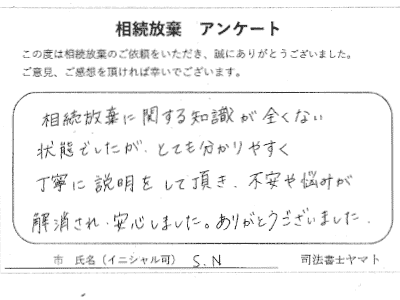 相続放棄 アンケート
この度は相続放棄のご依頼をいただき、誠にありがとうございました。
ご意見、ご感想を頂ければ幸いでございます。
相続放棄に関する知識が全くない
状態でしたが、とても分かりやすく
丁寧に説明をして頂き、不安や悩みが
解消され、安心しました。ありがとうございました。
市 氏名（イニシャル可） S.N 司法書士ヤマト